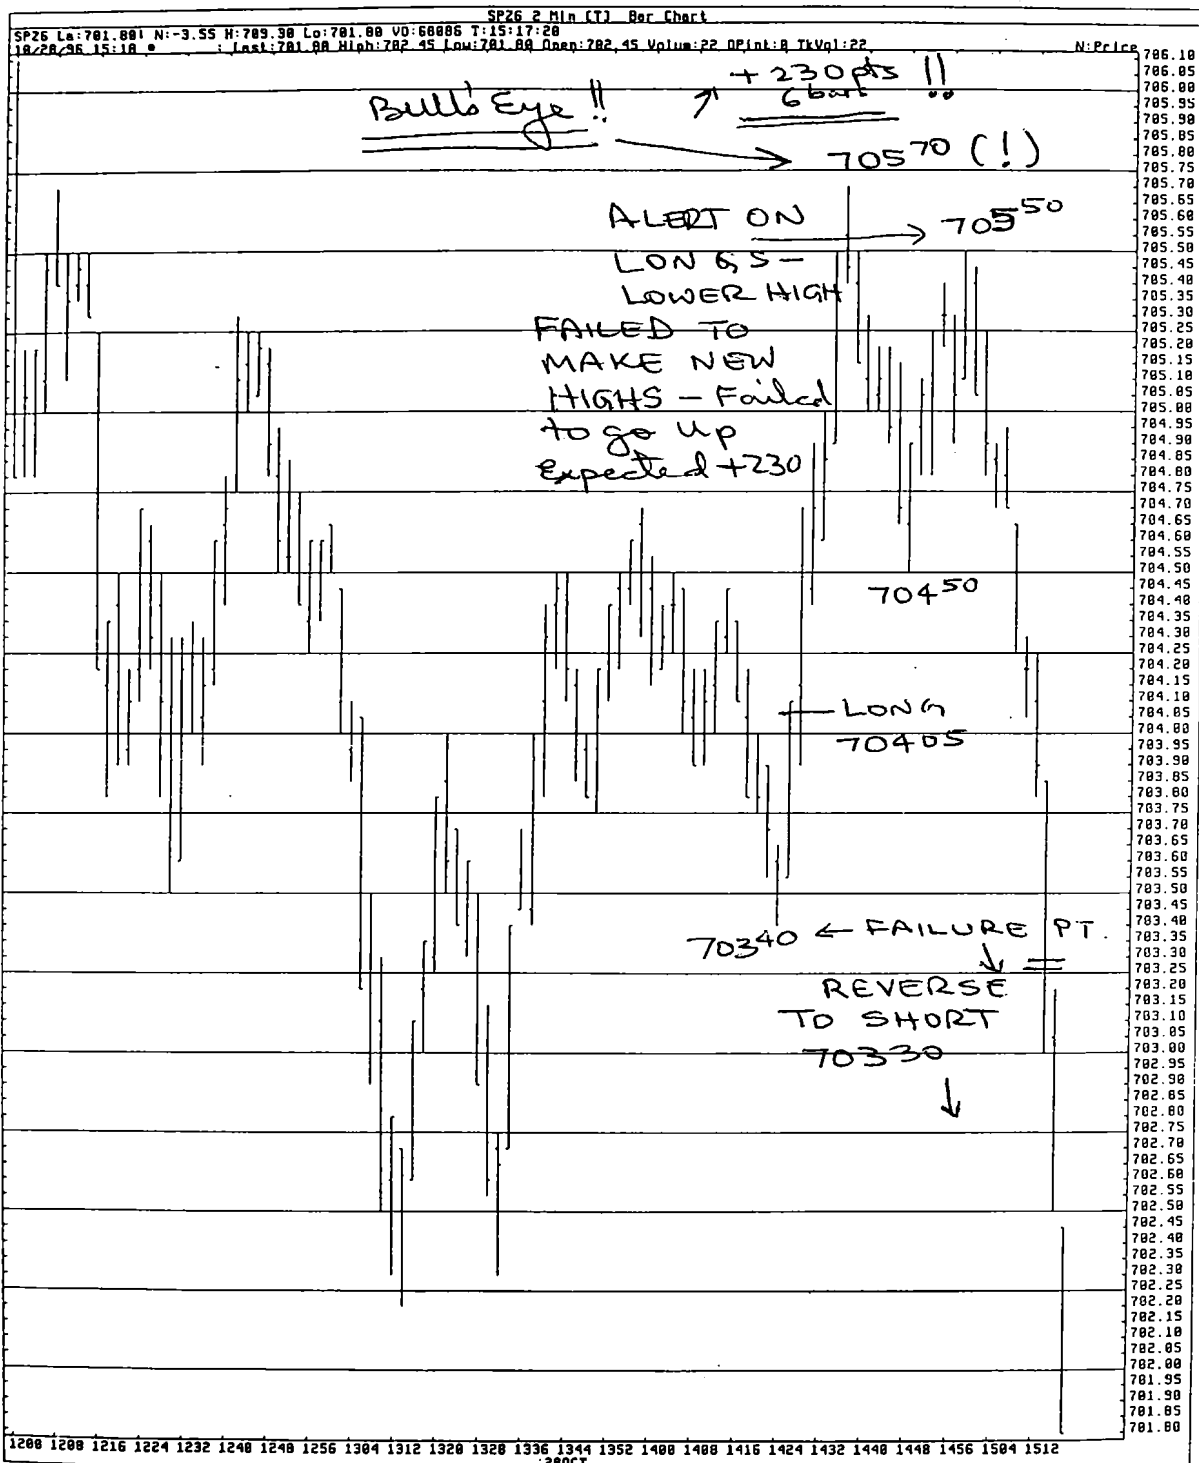 SPZ6 2 Min [T] Bar Chart
SPZ6 La:701.80↓ N:-3.55 H:709.30 Lo:701.80 VO:68086 T:15:17:20
10/28/96 15:18 : Last:701.80 High:702.45 Low:701.80 Open:702.45 Volume:22 OPint:0 TkVol:22 N:Price
Bull's Eye !!
+ 230 pts !!
6 bars
705 70 (!)
ALERT ON
LONGS —
LOWER HIGH
705 50
FAILED TO
MAKE NEW
HIGHS — Failed
to go up
Expected +230
704 50
LONG
704 05
703 40 ← FAILURE PT.
REVERSE
TO SHORT
703 30
706.10
706.05
706.00
705.95
705.90
705.85
705.80
705.75
705.70
705.65
705.60
705.55
705.50
705.45
705.40
705.35
705.30
705.25
705.20
705.15
705.10
705.05
705.00
704.95
704.90
704.85
704.80
704.75
704.70
704.65
704.60
704.55
704.50
704.45
704.40
704.35
704.30
704.25
704.20
704.15
704.10
704.05
704.00
703.95
703.90
703.85
703.80
703.75
703.70
703.65
703.60
703.55
703.50
703.45
703.40
703.35
703.30
703.25
703.20
703.15
703.10
703.05
703.00
702.95
702.90
702.85
702.80
702.75
702.70
702.65
702.60
702.55
702.50
702.45
702.40
702.35
702.30
702.25
702.20
702.15
702.10
702.05
702.00
701.95
701.90
701.85
701.80
1200 1208 1216 1224 1232 1240 1248 1256 1304 1312 1320 1328 1336 1344 1352 1400 1408 1416 1424 1432 1440 1448 1456 1504 1512
:28OCT